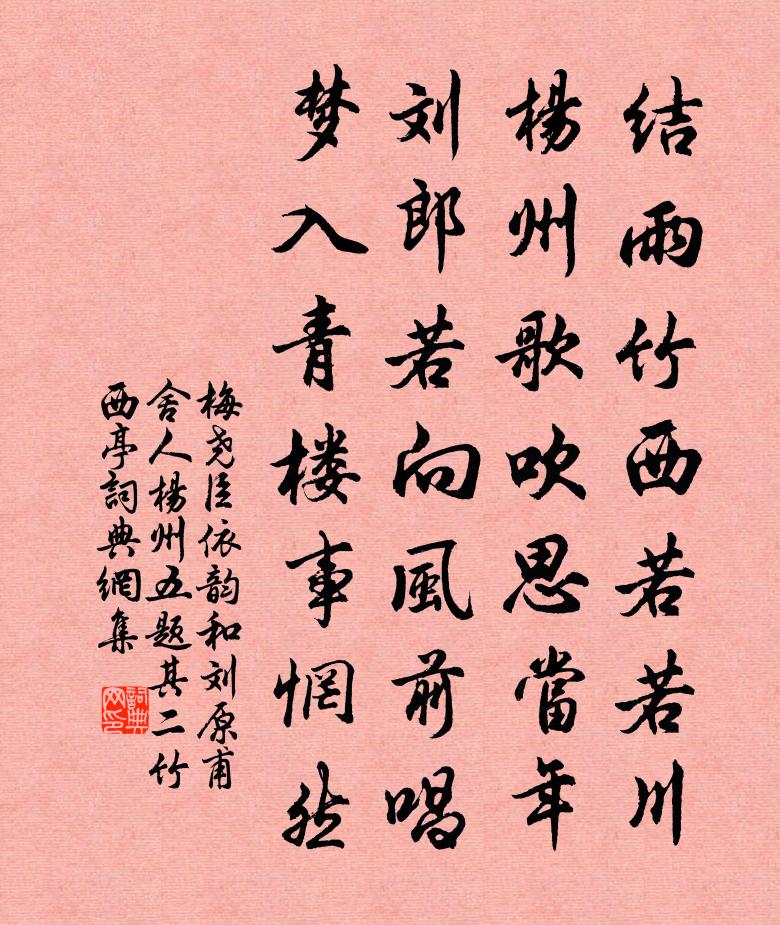 结雨竹西若若川
楊州歌吹思當年
刘郎若向風前唱
梦入青楼事惘然
梅尧臣依韵和刘原甫
舍人楊州五题其二竹
西亭詞典網集
詞典网印